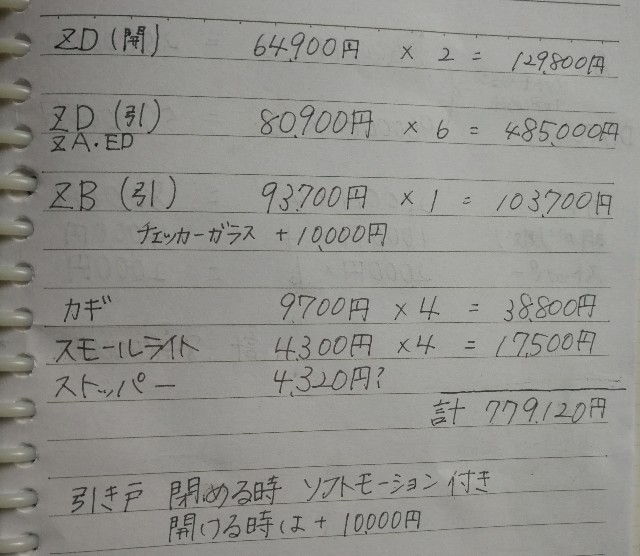 ZD (開) 64,900円 × 2 = 129,800円
ZD (引) 80,900円 × 6 = 485,000円
ZA・ED
ZB (引) 93,700円 × 1 = 103,700円
チェッカーガラス + 10,000円
カギ 9,700円 × 4 = 38,800円
スモールライト 4,300円 × 4 = 17,500円
ストッパー 4,320円?
計 779,120円
引き戸 閉める時 ソフトモーション付き
開ける時は + 10,000円